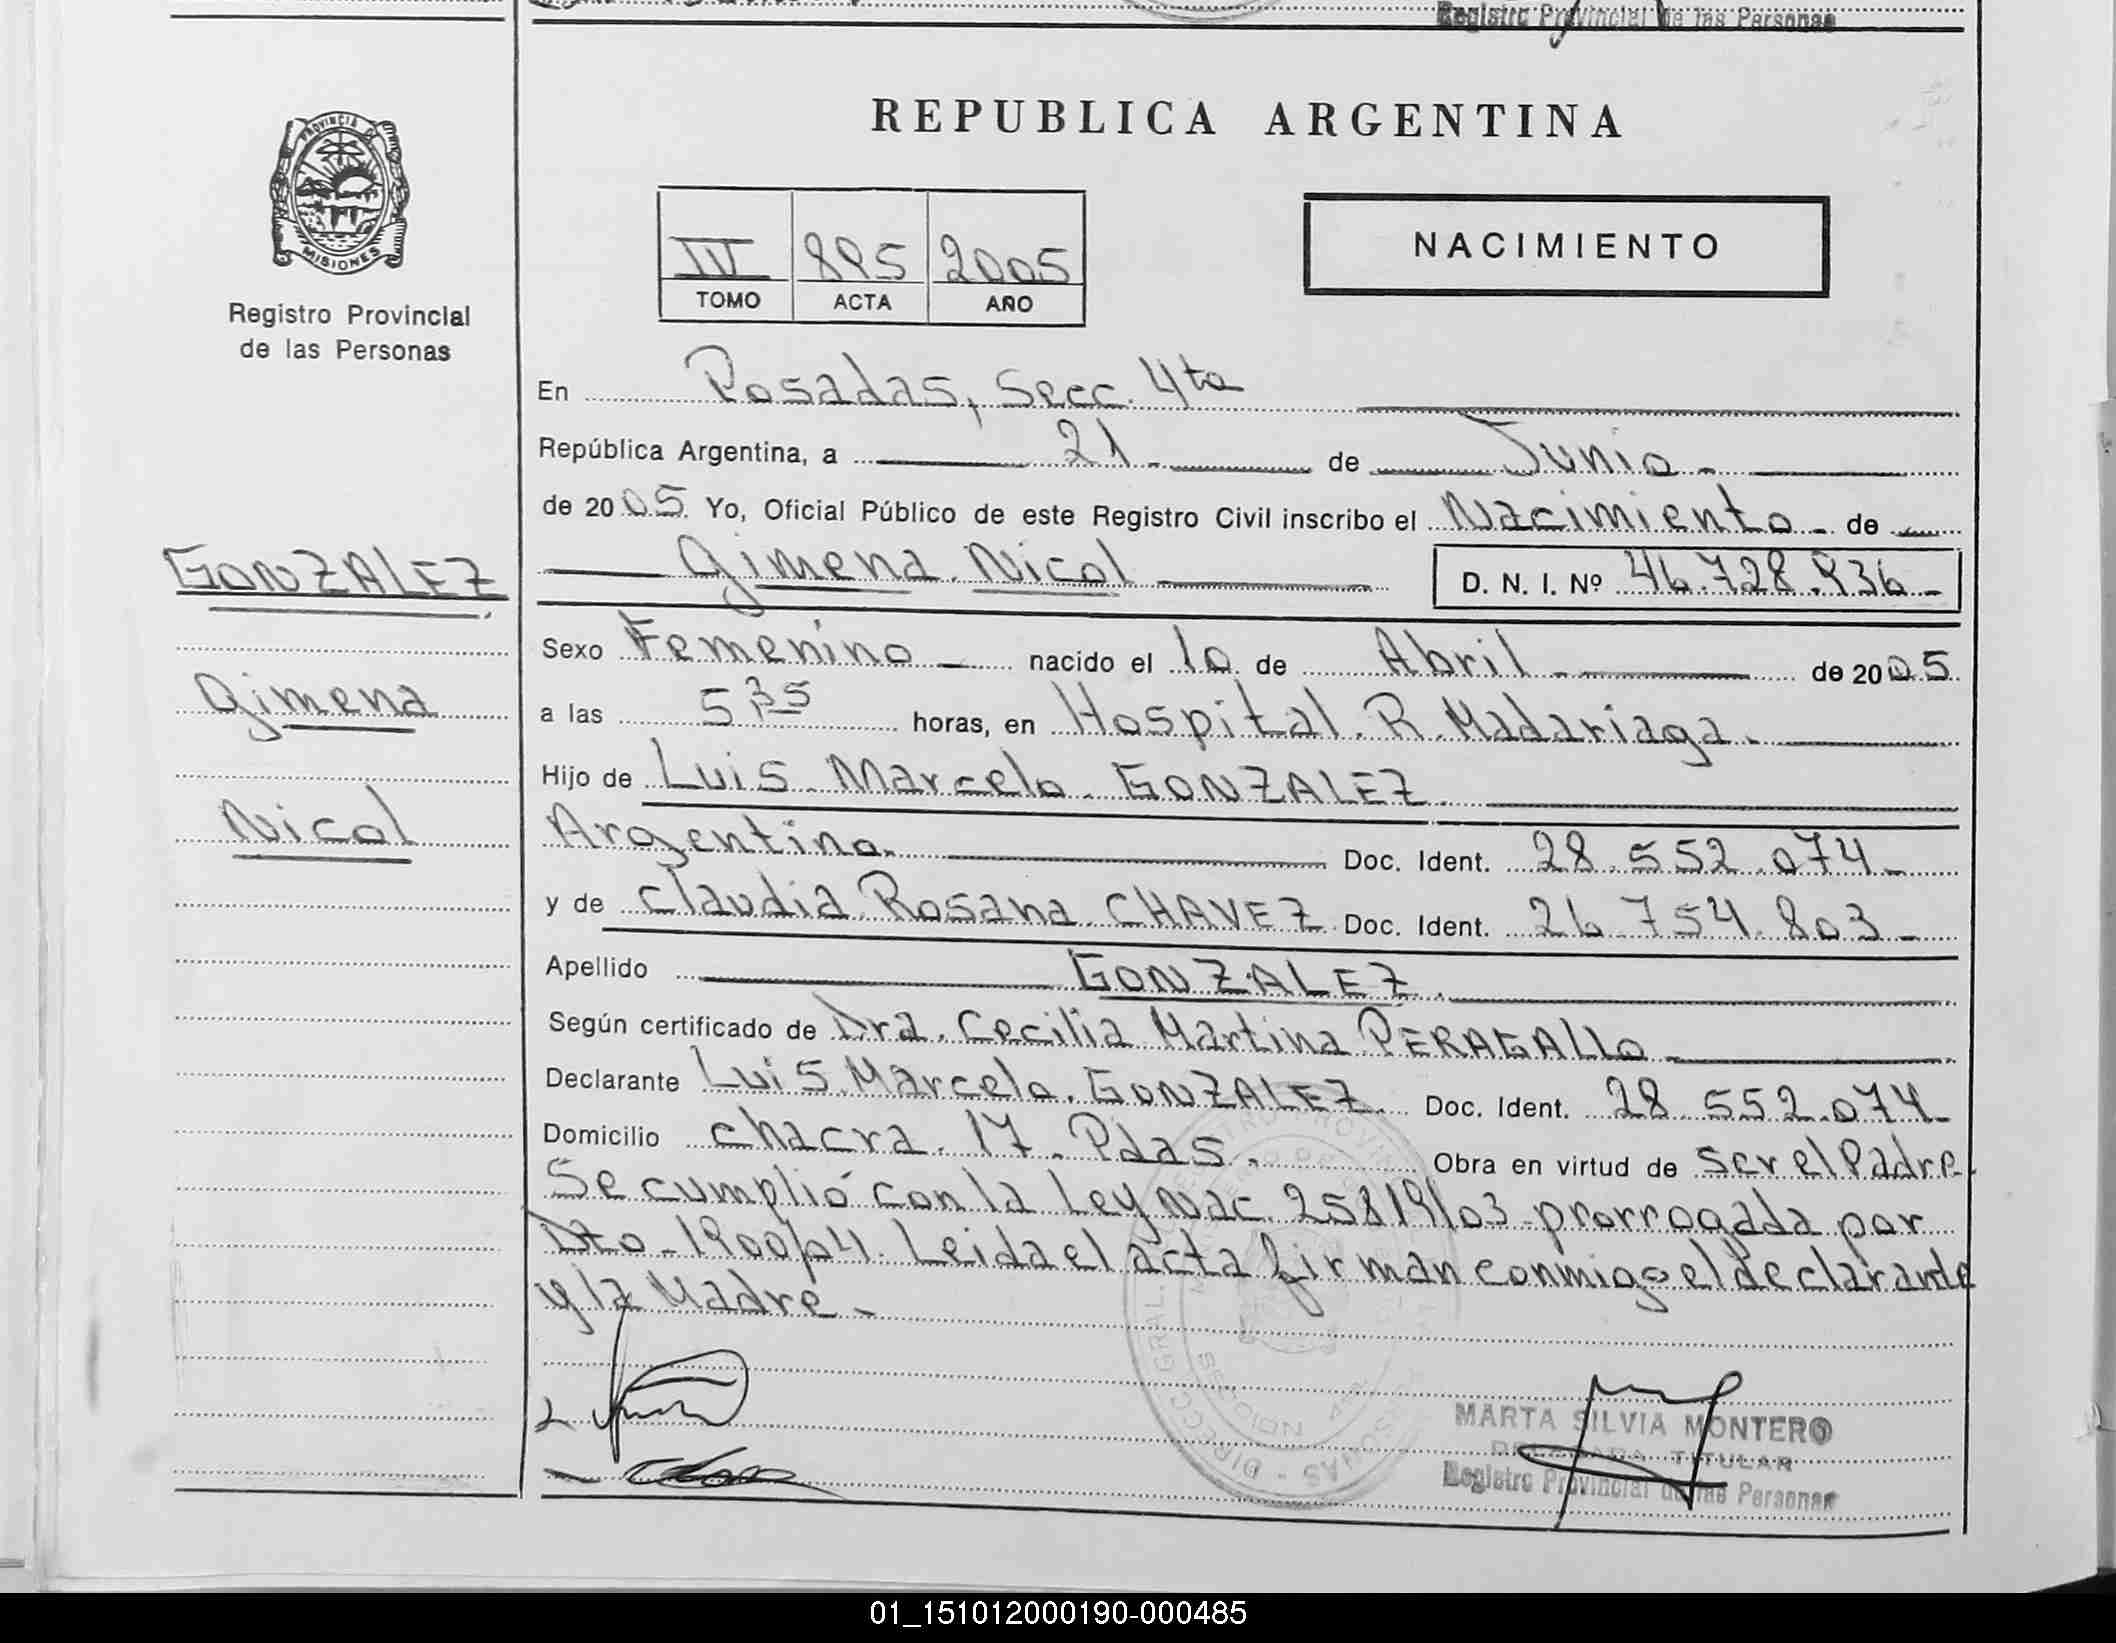 Registro Provincial de las Personas
PROVINCIA DE
MISIONES
Registro Provincial
de las Personas
GONZALEZ
Gimena
Nicol
REPUBLICA ARGENTINA
IV 895 2005
TOMO ACTA AÑO
NACIMIENTO
En Posadas, Secc. 4ta
República Argentina, a 21 - de Junio -
de 2005 Yo, Oficial Público de este Registro Civil inscribo el Nacimiento - de
Gimena Nicol D. N. I. Nº 46.728.936 -
Sexo Femenino - nacido el 10 de Abril - de 2005
a las 5,35 horas, en Hospital R. Madariaga -
Hijo de Luis Marcelo GONZALEZ
Argentino. Doc. Ident. 28.552.074 -
y de Claudia Rosana CHAVEZ Doc. Ident. 26.754.803 -
Apellido GONZALEZ.
Según certificado de Dra. Cecilia Martina PERAGALLO -
Declarante Luis Marcelo GONZALEZ Doc. Ident. 28.552.074 -
Domicilio chacra 17 Pdas. Obra en virtud de ser el Padre.
Se cumplió con la Ley Nac. 25819/03 prorrogada por
Dto - 1900/04. Leida el acta firman conmigo el declarante
y la Madre -
MARTA SILVIA MONTERO
DELEGADA TITULAR
Registro Provincial de las Personas
01_151012000190-000485